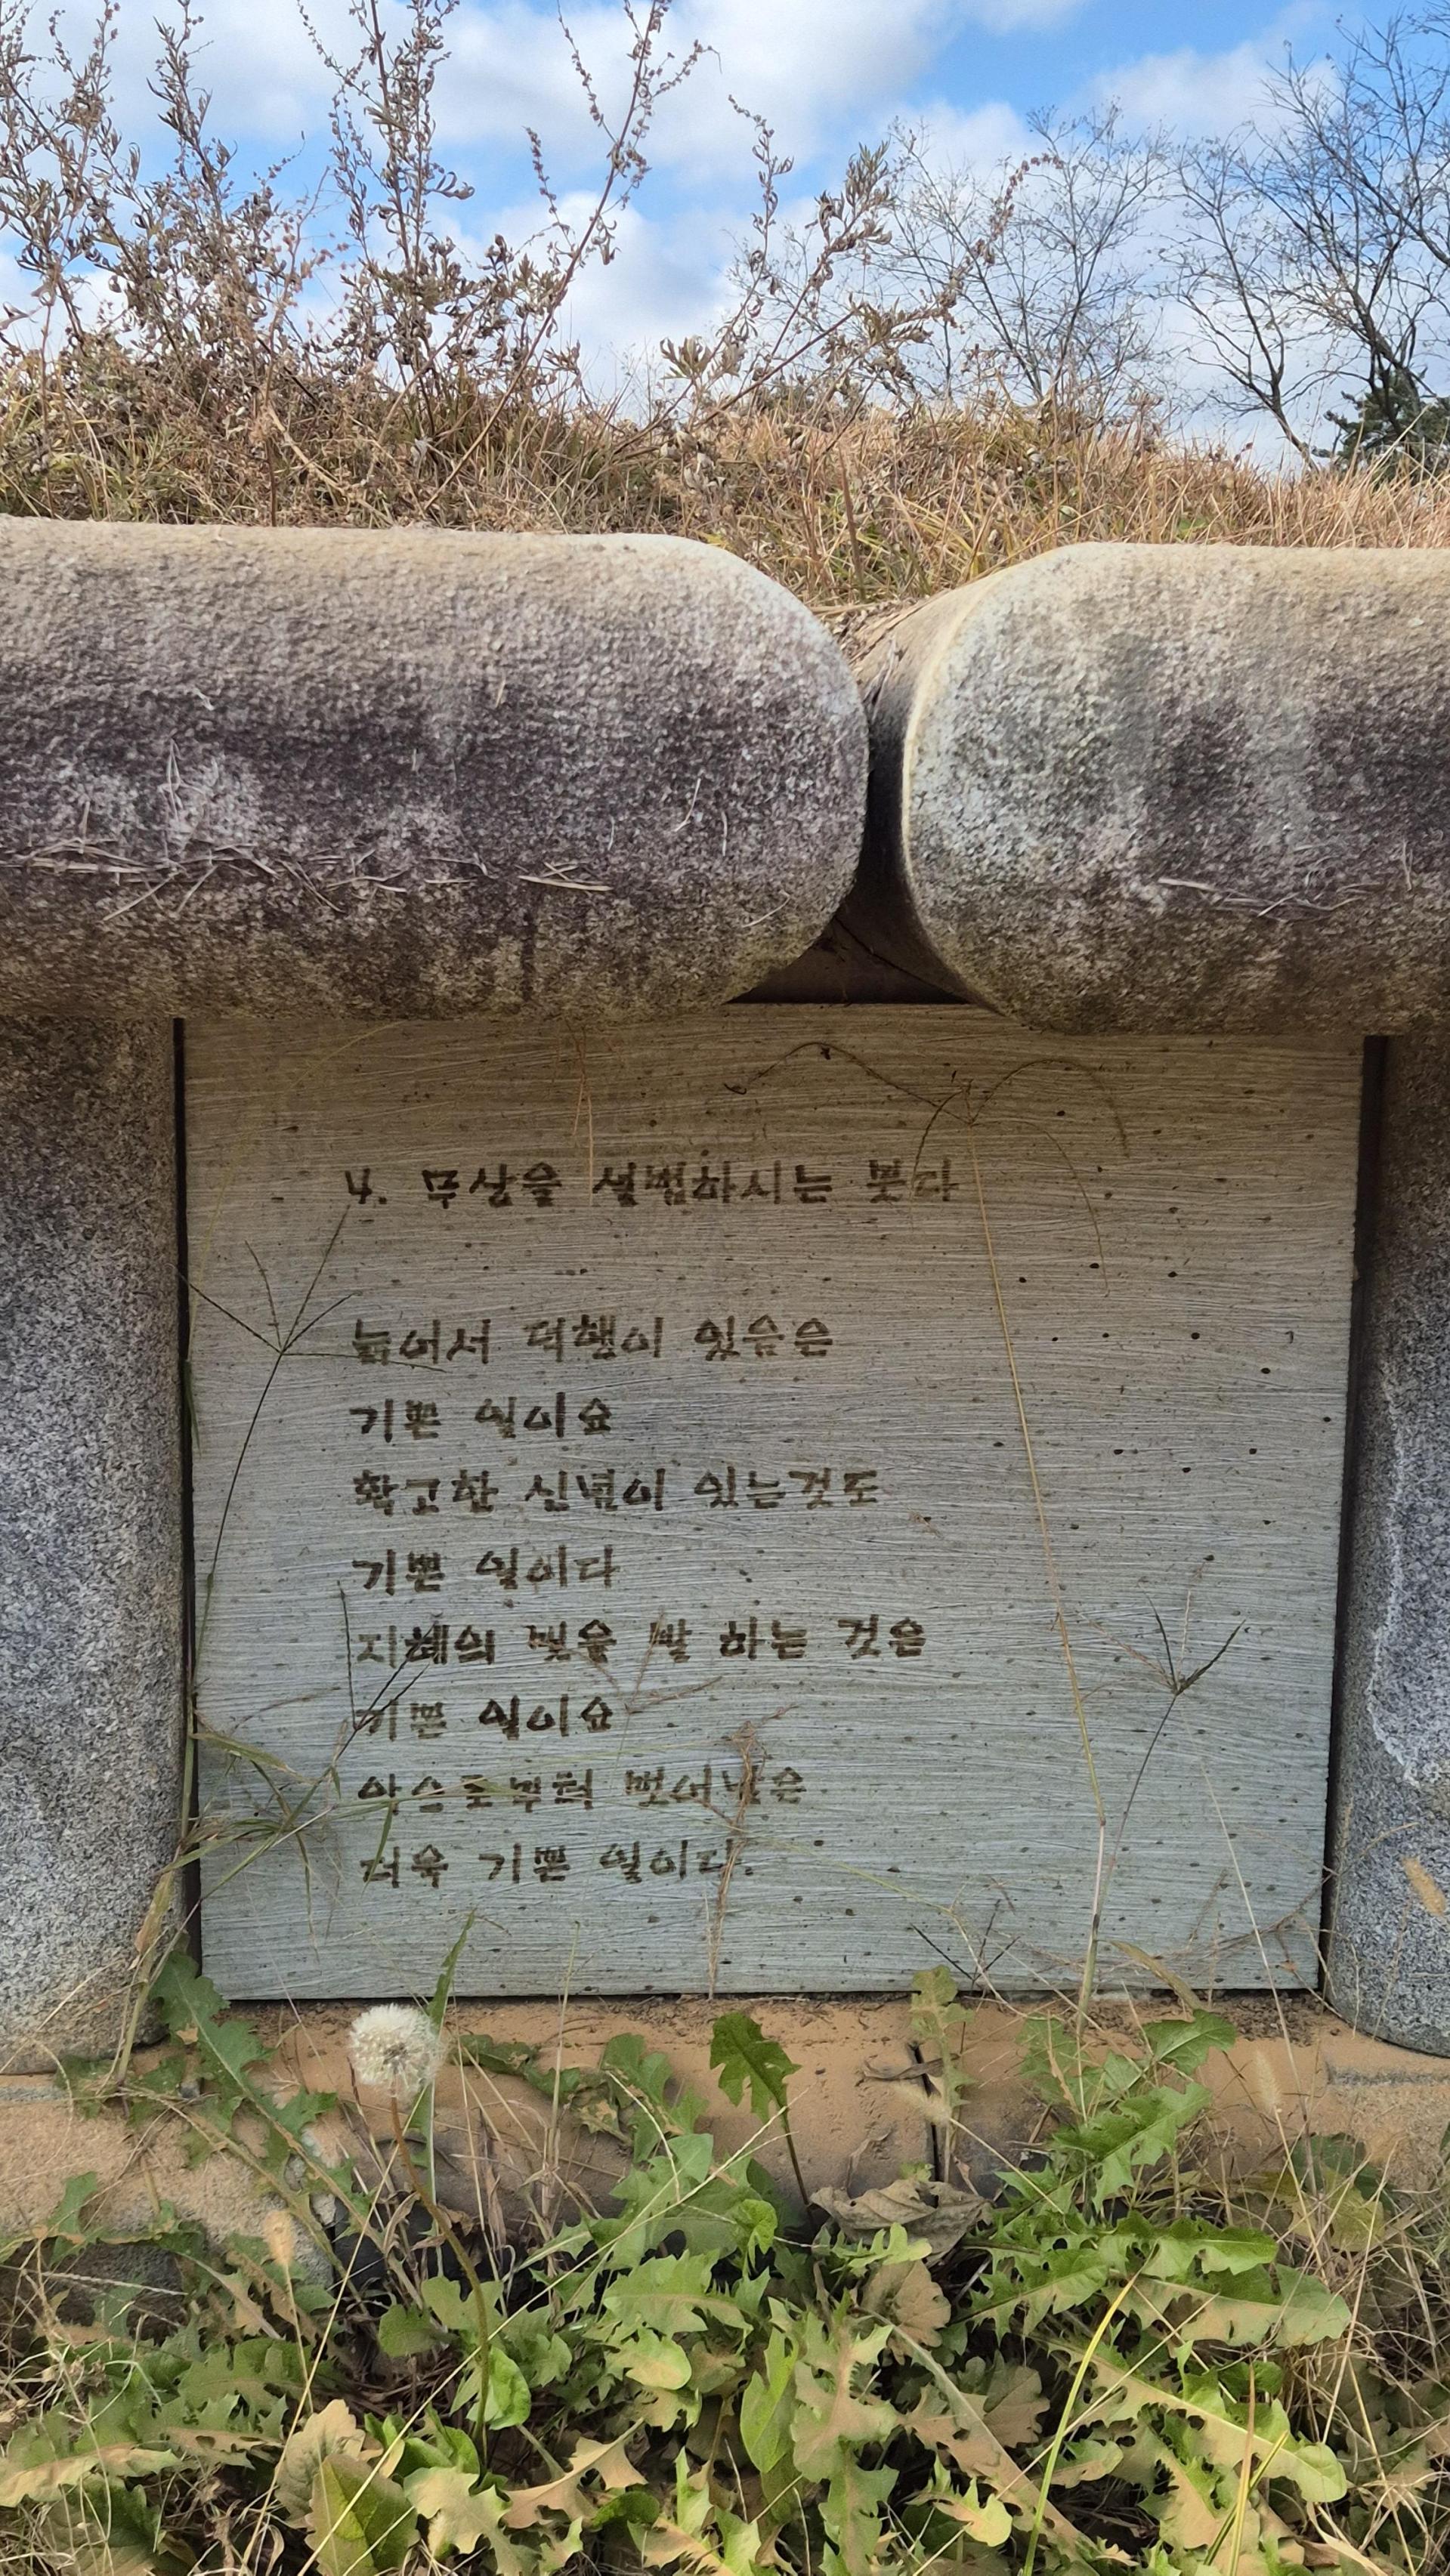 4. 무상을 설법하시는 붓다
늙어서 덕행이 있음은
기쁜 일이요
확고한 신념이 있는것도
기쁜 일이다
지혜의 빛을 발 하는 것은
기쁜 일이요
악으로부터 벗어남은
더욱 기쁜 일이다.